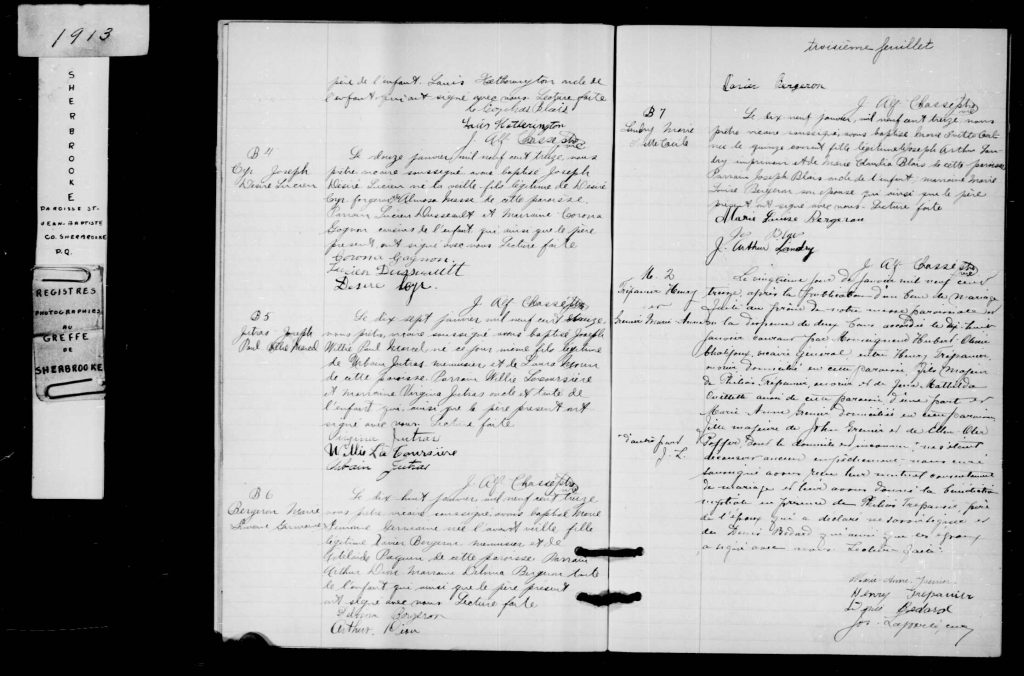 1913
SHERBROOKE
ST. JEAN-BAPTISTE
CO. SHERBROOKE
P.Q.
REGISTRES
PHOTOGRAPHIES
AU
GREFFE
DE
SHERBROOKE
père de l'enfant. Louis Hetherington oncle de
l'enfant qui ont signé avec nous Lecture faite
Louis Hetherington
J. Alf Chassé ptre
B 4
Cyr Joseph
Désiré Lucien
Le douze janvier, mil neuf cent treize, nous
prêtre, vicaire soussigné avons baptisé Joseph
Désiré Lucien né la veille fils légitime de Désiré
Cyr forgeron et de cette paroisse.
Parrain Lucien Dussault et marraine Corona
Gagnon cousins de l'enfant qui, ainsi que le père
présent ont signé avec nous Lecture faite
Corona Gagnon.
Lucien Dussault
Désiré Cyr.
J. Alf Chassé ptre
B 5
Jutras Joseph
Paul Willie Marcel
Le dix sept janvier mil neuf cent treize,
nous prêtre, vicaire soussigné avons baptisé Joseph
Willie Paul Marcel né ce jour même fils légitime
de Urbain Jutras menuisier et de Laura
de cette paroisse. Parrain Willie Lacoursière
et marraine Virginia Jutras oncle et tante de
l'enfant qui, ainsi que le père présent ont
signé avec nous Lecture faite
Virginia Jutras
Willis La Coursière
Urbain Jutras
J. Alf Chassé ptre
B 6
Bergeron Marie
Germaine
Le dix huit janvier, mil neuf cent treize
nous prêtre vicaire soussigné, avons baptisé Marie
Germaine née l'avant veille, fille
légitime Xavier Bergeron menuisier et de
Paquin de cette paroisse. Parrain
Arthur Dion Marraine Delvina Bergeron tante
de l'enfant qui ainsi que le père présent
ont signé avec nous Lecture faite
Bergeron
Arthur Dion
troisième feuillet
Xavier Bergeron
J. Alf Chassé ptre
B 7
Landry Marie
Le dix neuf janvier, mil neuf cent treize, nous
prêtre vicaire soussigné, avons baptisé Marie
née le quinze courant fille légitime Joseph Arthur Lan-
dry imprimeur et de Marie Claudia Blais de cette paroisse
Parrain Joseph Blais oncle de l'enfant marraine Marie
Louise Bergeron son épouse qui ainsi que le père
présent ont signé avec nous. Lecture faite
Marie Louise Bergeron
Jos Blais
J. Arthur Landry
J. Alf Chassé ptre
M. 2
Trépanier Henry
et
Grenier Marie Anne
Le vingtième jour de janvier mil neuf cent
treize, après la publication d'un ban de mariage
faite au prône de notre messe paroissiale et
vu la dispense de deux bans accordée le dix-huit
janvier courant par Monseigneur Hubert Olivier
Chalifoux, vicaire général, entre Henry Trépanier,
domicilié en cette paroisse, fils majeur
de Philias Trépanier, et de Mathilda
Ouellette aussi de cette paroisse d'une part et
Marie Anne Grenier domiciliée en cette paroisse
fille majeure de John Grenier et de Ellen
dont le domicile est inconnu ne s'étant
découvert aucun empêchement nous curé
soussigné avons reçu leur mutuel consentement
de mariage et leur avons donné la bénédiction
nuptiale en présence de Philias Trépanier, père
de l'époux qui a déclaré ne savoir signer et
de Bédard qui ainsi que les époux
a signé avec nous. Lecture faite.
*d'autre part
J. L.
Marie-Anne Grenier
Henry Trépanier
Bédard
Jos. Laporte, curé